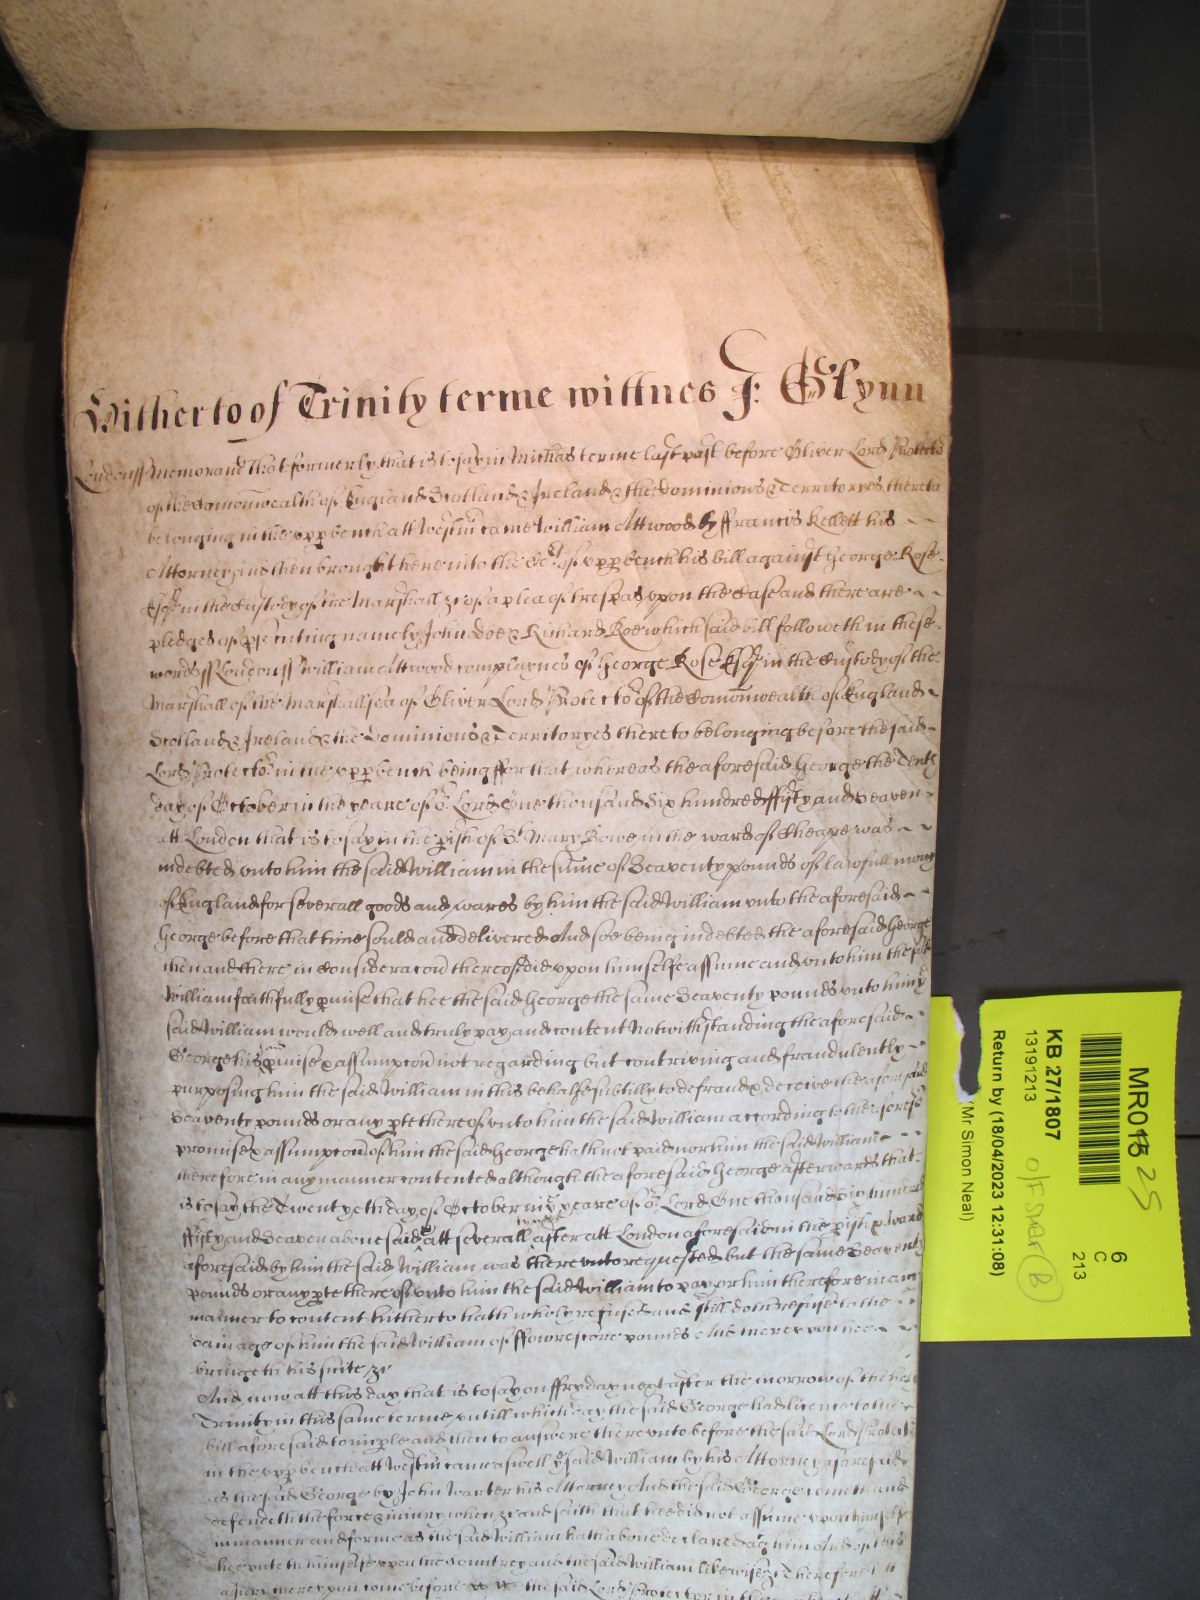 Hitherto of Trinity terme wittnes J: Glynn
London ss Memorand that formerly that is to say in Michas terme last past before Oliver Lord Protector
of the Comonwealth of England Scotland & Ireland & the dominions & Territoryes thereto
belonging in the upp bench att Westm came William Attwood by ffrancis Kellett his
Attorney and then brought here into the Ct of upp bench his bill against George Rose
Esqr in the Custody of the Marshall &c of a plea of trespas upon the Case and there are
pledges of psecuting namely John Doe & Richard Roe which said bill followeth in these
words ss London ss William Attwood complaynes of George Rose Esqr in the Custody of the
Marshall of the Marshallsea of Oliver Lord Protector of the Comonwealth of England
Scotland & Ireland & the Dominions & Territoryes thereto belonging before the said
Lord Protector in the upp bench being ffor that whereas the aforesaid George the Tenth
day of October in the yeare of or Lord One thousand Six hundred ffifty and Seaven
att London that is to say in the pish of St Mary Bowe in the ward of Cheape was
indebted unto him the said William in the sume of Seaventy pounds of lawfull mony
of England for severall goods and wares by him the said William unto the aforesaid
George before that time sould and delivered And soe being indebted the aforesaid George
then and there in Consideracon thereof did upon himselfe assume and unto him the said
William faithfully pmise that hee the said George the same Seaventy pounds unto him ye
said William would well and truly pay and content Notwithstanding the aforesaid
George his pmise & assumpcon not regarding but contriving and fraudulently
purposing him the said William in this behalfe subtilly to defraud & deceive the aforesaid
Seaventy pounds or any pte thereof unto him the said William according to the aforesd
promise & assumpcon of him the said George hath not paid nor him the said William
therefore in any manner contented although the aforesaid George afterwards that
is to say the Twentyeth day of October in ye yeare of or Lord One thousand Six hundred
ffifty and Seaven abovesaid & att severall tymes after att London aforesaid in the pish & ward
aforesaid by him the said William was thereunto requested but the same Seaventy
pounds or any pte thereof unto him the said William to pay or him therefore in any
manner to content hitherto hath wholy refused and still doth refuse to the
damage of him the said William of ffowrescore pounds And thereupon hee
bringeth his suite &c
And now att this day that is to say on ffryday next after the morrow of the holy
Trinity in this same terme untill which day the said George had licence to the
bill aforesaid to imple and then to answere thereunto before the said Lord Protector
in the upp bench att Westm came aswell ye said William by his Attorney aforesaid
as the said George by John Warter his Attorney And the said George cometh and
defendeth the force & iniury when &c and saith that hee did not assume upon himselfe
in manner and forme as the said William hath above declared agt him And of this
hee putteth himselfe upon the Countrey and the said William likewise &c Therefore lett
a Jury thereupon come before the said Lord Protector in the
MR015
25
6
C
213
KB 27/1807
13191213
O/F Shelf B
Return by (18/04/2023 12:31:08)
(Mr Simon Neal)